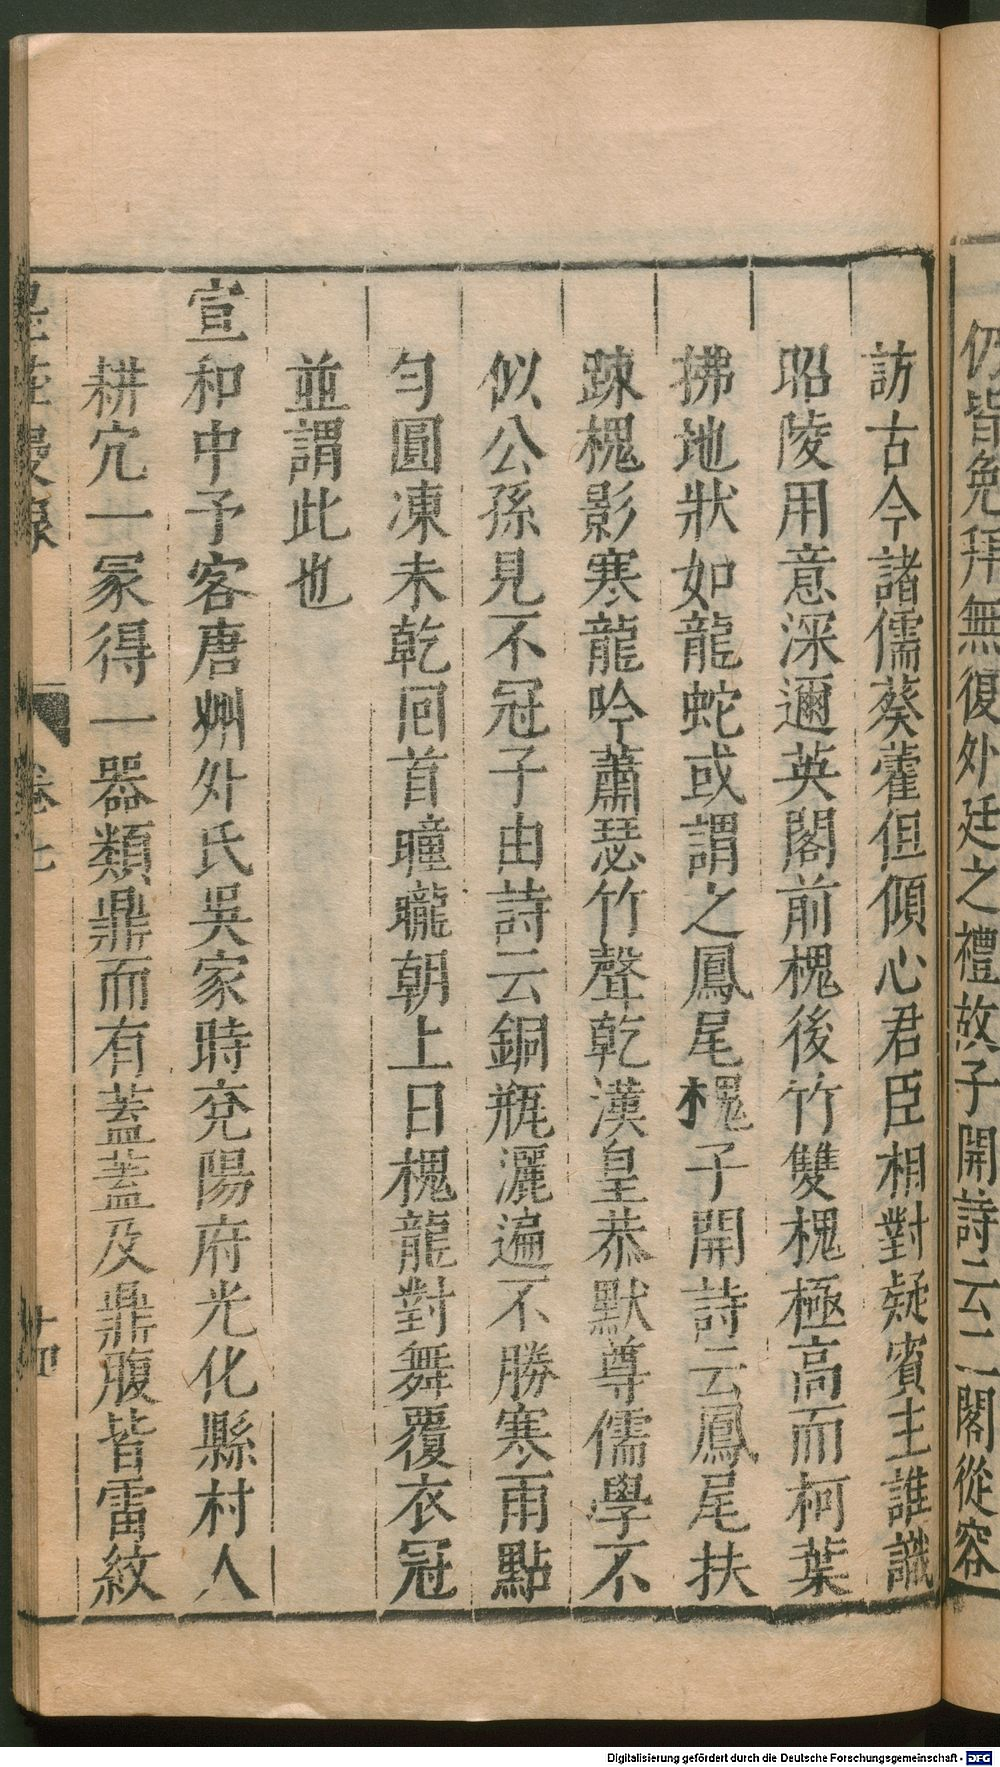 仍皆免拜無復外廷之禮故子開詩云二閣從容
訪古今諸儒葵藿但傾心君臣相對疑賓主誰識
昭陵用意深邇英閣前槐後竹雙槐極高而柯葉
拂地狀如龍蛇或謂之鳳尾槐子開詩云鳳尾扶
踈槐影寒龍吟蕭瑟竹聲乾漢皇恭默尊儒學不
似公孫見不冠子由詩云銅瓶灑遍不勝寒雨點
匀圓凍未乾囘首曈曨朝上日槐龍對舞覆衣冠
並謂此也
宣和中予客唐州外氏吳家時兖陽府光化縣村人
耕宂一冢得一器類鼎而有蓋蓋及鼎腹皆雷紋
卷七
Digitalisierung gefördert durch die Deutsche Forschungsgemeinschaft - DFG